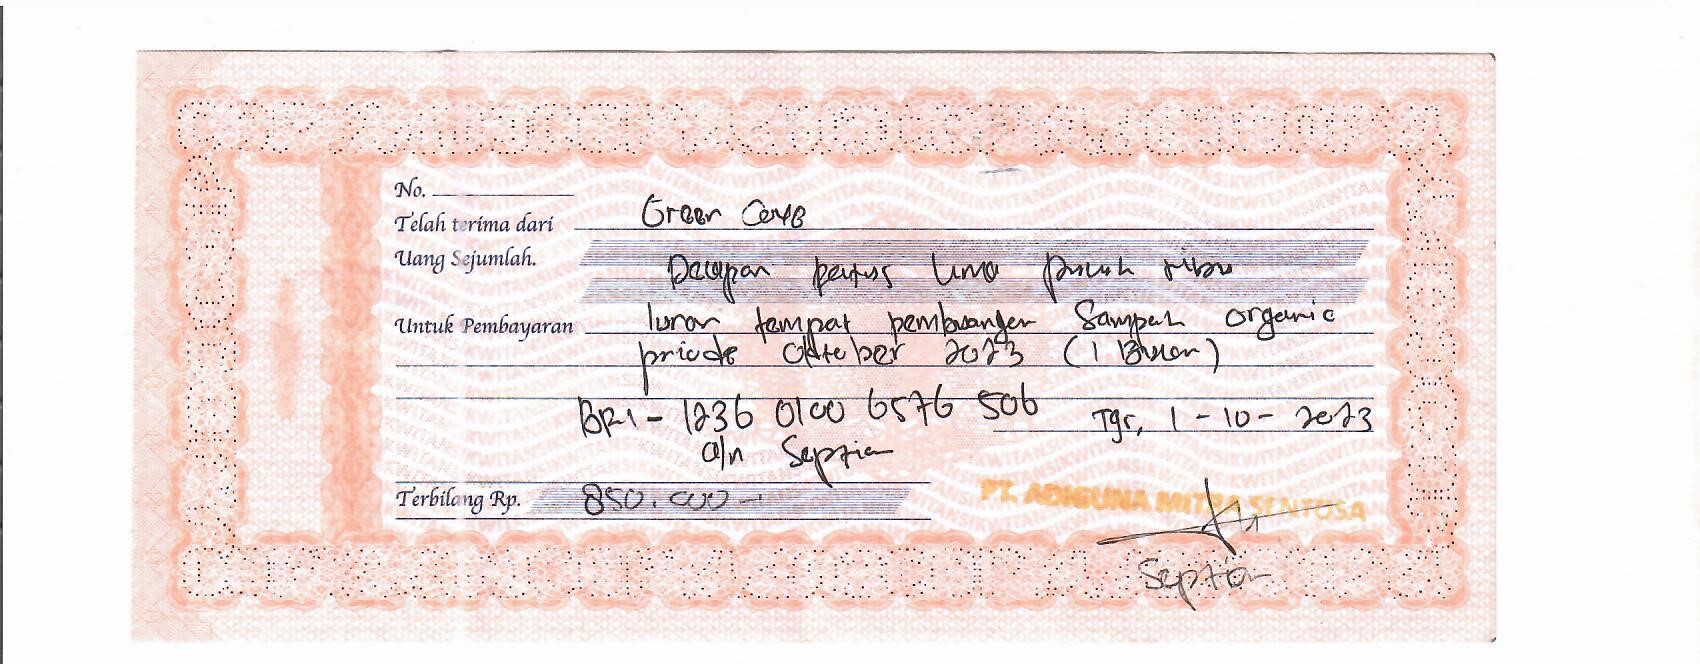 No.
Telah terima dari Green Cove
Uang Sejumlah. Delapan ratus lima puluh ribu
Untuk Pembayaran Iuran tempat pembuangan Sampah organic
priode Oktober 2023 (1 Bulan)
BRI - 1236 0100 6576 506
Tgr, 1 - 10 - 2023
a/n Septian
Terbilang Rp. 850.000 -
PT. MITRA SENTOSA
Septian